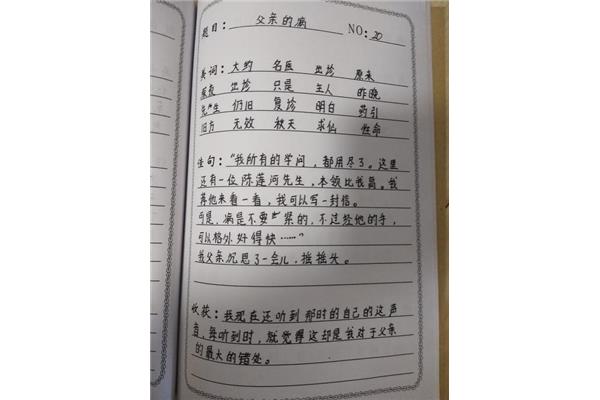 题目：父亲的病 NO：20
美词：大约 名医 出诊 原来
出诊 只是 主人 昨晚
先生 仍旧 复诊 明白 药引
旧方 无效 秋天 求仙 性命
佳句："我所有的学问，都用尽了。这里
还有一位陈莲河先生，本领比我高。我
荐他来看一看，我可以写一封信。
可是，病是不要紧的，不过经他的手，
可以格外好得快……"
我父亲沉思了一会儿，摇摇头。
收获：我现在还听到那时的自己的这声
音，每听到时，就觉得这却是我对于父亲
的最大的错处。